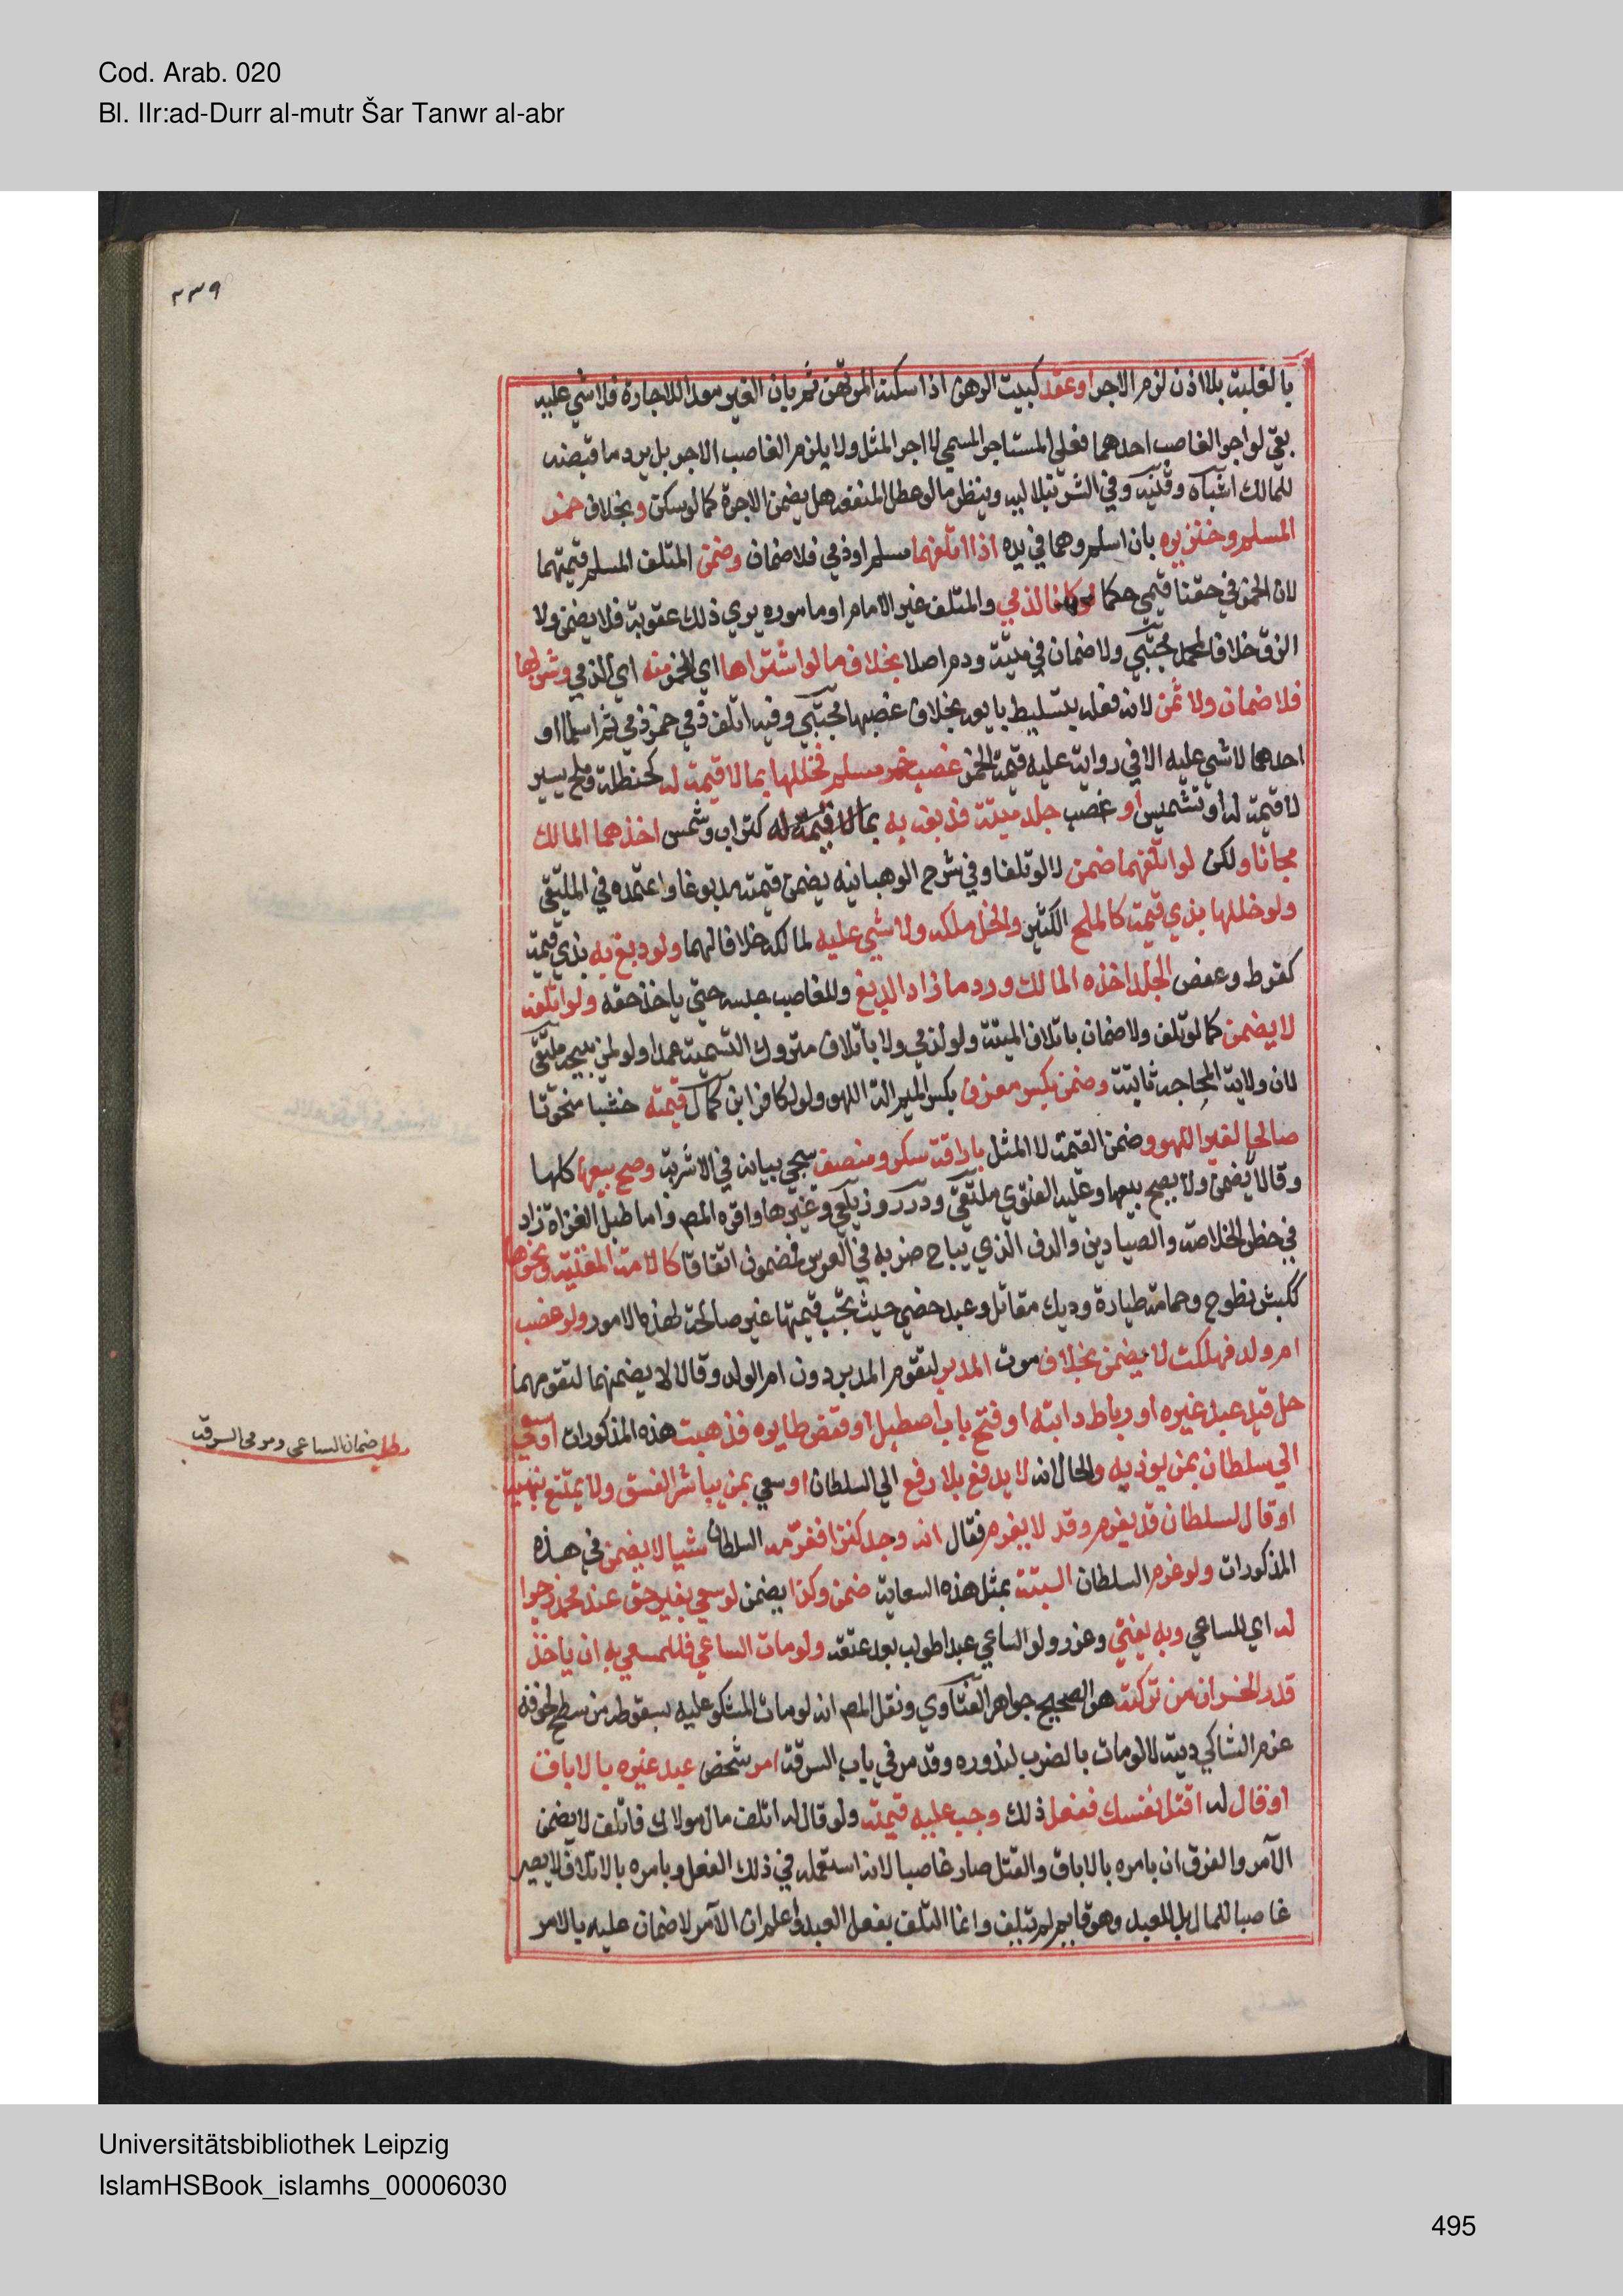 Cod. Arab. 020
Bl. IIr:ad-Durr al-mutr Šar Tanwr al-abr
٢٣٩
بالغلبة بلا اذن لزم الاجر او عقد كبيت الرهن اذا سكنه المرتهن ثم بان للغير معدا للاجارة فلا شي عليه
بقي لو اجر الغاصب احدهما فعلى المستاجر المسمى لا اجر المثل ولا يلزم الغاصب الاجر بل يرد ما قبضه
للمالك اشباه وقنيه وفي الشرنبلاليه وينظر ما لو عطل المنفعه هل يضمن الاجرة كما لو سكن وبخلاف خمر
المسلم وخنزيره بان اسلم وهما في يده اذا اتلفهما مسلم او ذمي فلا ضمان وضمن المتلف المسلم قيمتهما
لان الخمر في حقنا قيمي حكما لو كانا لذمي والمتلف غير الامام او ماموره يرى ذلك عقوبة فلا يضمن ولا
الزق خلافا لمحمد مجتبى ولا ضمان في ميتة ودم اصلا بخلاف ما لو اشتراها اي الخمر منه اي الذمي وشربها
فلا ضمان ولا ثمن لانه فعله بتسليط بايعه بخلاف غصبها مجتبى وفيه اتلف ذمي خمر ذمي ثم اسلما او
احدهما لا شي عليه الا في رواية عليه قيمة الخمر غصب خمر مسلم فخللها بما لا قيمة له كحنطة وملح يسير
لا قيمة له او تشميس او غصب جلد ميتة فدبغه به بما لا قيمة له كتراب وشمس اخذهما المالك
مجانا ولكن لو اتلفهما ضمن لا لو تلفا وفي شرح الوهبانيه يضمن قيمته مدبوغا واعتمده في الملتقى
ولو خللها بذي قيمة كالملح الكثير والخل ملكه ولا شي عليه لمالكه خلافا لهما ولو دبغ به بذي قيمة
كقرظ وعفص الجلد اخذه المالك ورد ما زاد الدبغ وللغاصب حبسه حتى ياخذ حقه ولو اتلفه
لا يضمن كما لو تلف ولا ضمان باتلاف الميتة ولو لذمي ولا باتلاف متروك التسمية عمدا ولو لمن يبيحه ملتقى
لان ولاية المحاجة ثابتة وضمن بكسر معزف بكسر الميم الة اللهو ولو لكافر ابن كمال قيمته خشبا منحوتا
صالحا لغير اللهو وضمن القيمة لا المثل باراقة سكر ومنصف سيجي بيانه في الاشربة وصح بيعها كلها
وقالا لا يضمن ولا يصح بيعها وعليه الفتوى ملتقى ودرر وزيلعي وغيرها واقره المص واما طبل الغزاة زاد
في حظر الخلاصة والصيادين والدف الذي يباح ضربه في العرس فمضمون اتفاقا كالامة المغنية ونحوها
ككبش نطوح وحمامة طيارة وديك مقاتل وعبد خصي حيث تجب قيمتها غير صالحة لهذه الامور ولو غصب
ام ولد فهلكت لا يضمن بخلاف موت المدبر لتقوم المدبر دون ام الولد وقالا لا يضمنهما لتقومهما
حل قيد عبد غيره او رباط دابته او فتح باب اصطبل او قفص طايره فذهبت هذه المذكورات او سعى
الى سلطان بمن يوذيه والحال انه لا يدفع بلا رفع الى السلطان او سعى بمن يباشر الفسق ولا يمتنع بنهيه
او قال لسلطان قد يغرم وقد لا يغرم فقال انه وجد كنزا فغرمه السلطان شيا لا يضمن في هذه
المذكورات ولو غرم السلطان البتة بمثل هذه السعاية ضمن وكذا يضمن لو سعى بغير حق عند محمد زجرا
له اي للساعي وبه يفتى وعزر ولو الساعي عبدا طولب بعد عتقه ولو مات الساعي فللمسعى به ان ياخذ
قدر الخسران من تركته هو الصحيح جواهر الفتاوي ونقل المص انه لو مات المشكو عليه بسقوطه من سطح لخوفه
غرم الشاكي ديته لا لو مات بالضرب لندوره وقد مر في باب السرقة امر شخص عبد غيره بالاباق
او قال له اقتل نفسك ففعل ذلك وجب عليه قيمته ولو قال له اتلف مال مولاك فاتلف لا يضمن
الآمر والفرق ان بامره بالاباق والقتل صار غاصبا لانه استعمله في ذلك الفعل وبامره بالاتلاف لا يصير
غاصبا للمال بل للعبد وهو قايم لم يتلف وانما التلف بفعل العبد واعلم ان الآمر لا ضمان عليه بالامر
مطلب ضمان الساعي ومر في السرقة
Universitätsbibliothek Leipzig
IslamHSBook_islamhs_00006030
495